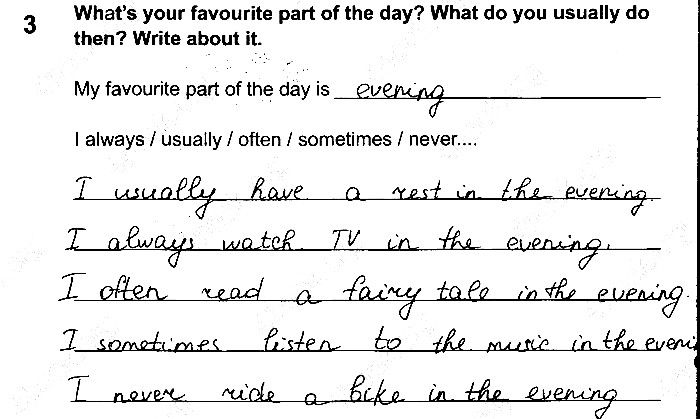 3
What's your favourite part of the day? What do you usually do
then? Write about it.
My favourite part of the day is evening
I always / usually / often / sometimes / never....
I usually have a rest in the evening.
I always watch TV in the evening.
I often read a fairy tale in the evening.
I sometimes listen to the music in the eveni
I never ride a bike in the evening